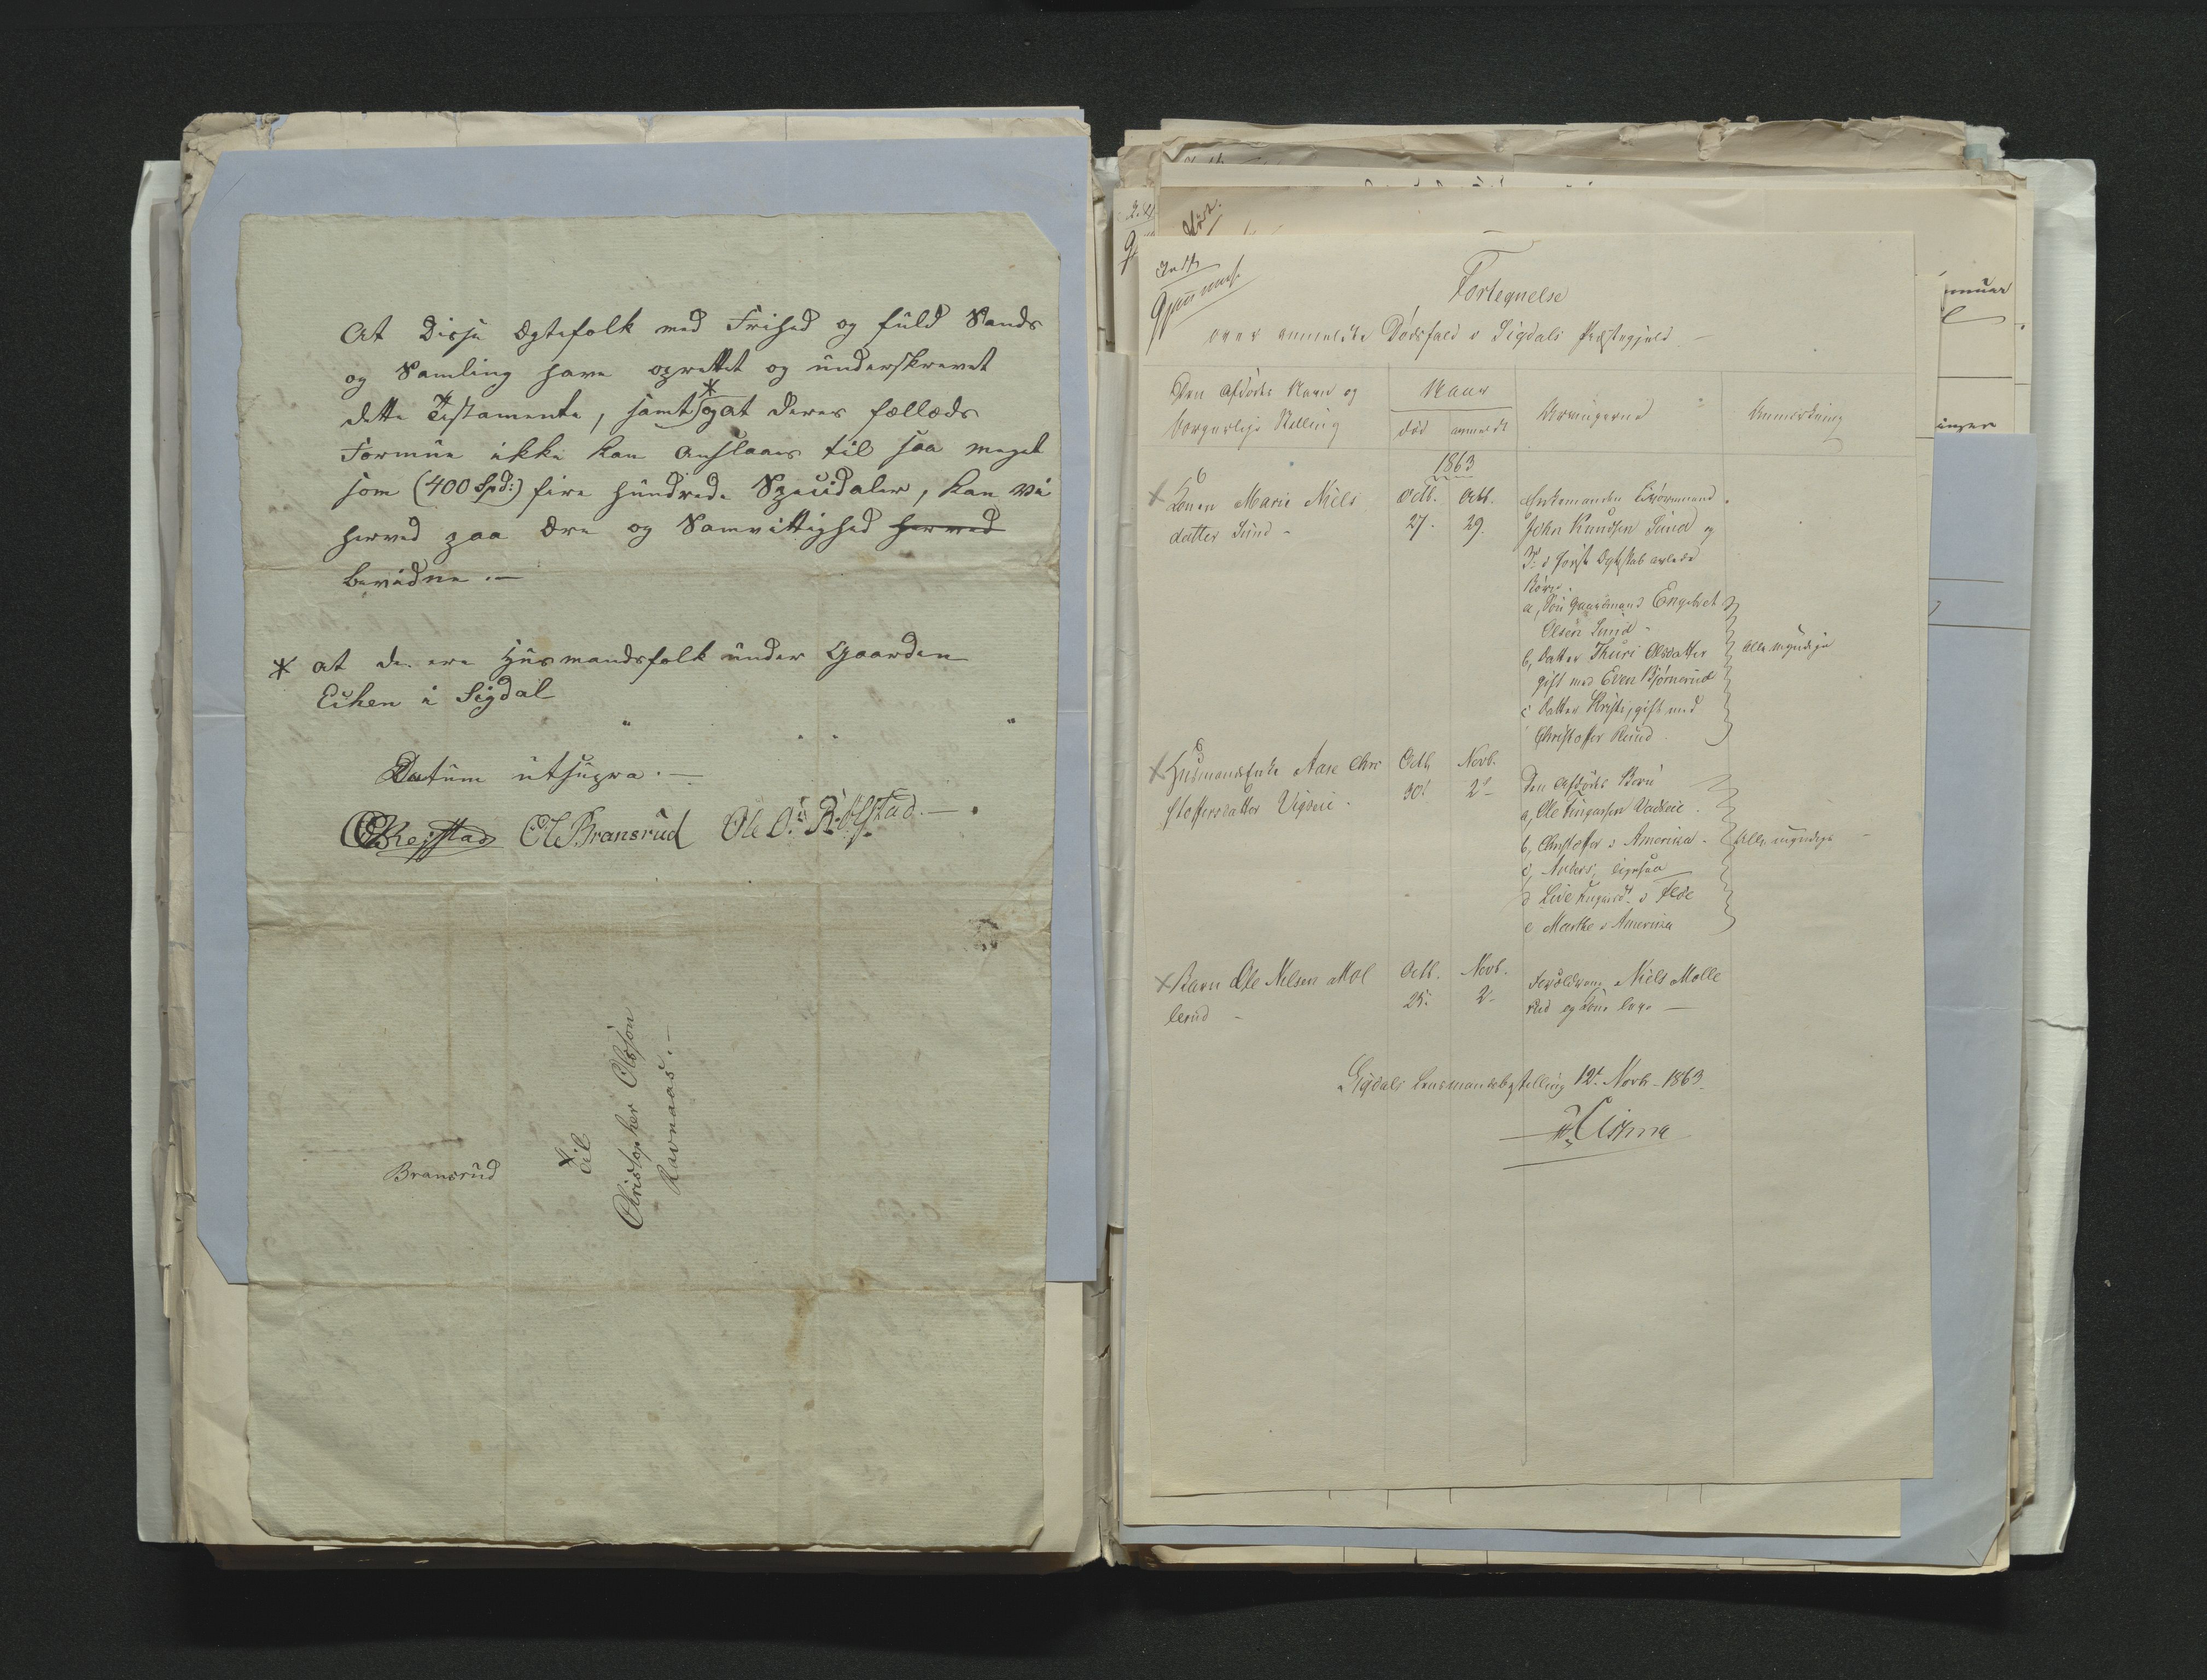 At disse Ægtefolk med Frihed og fuld Sands
og Samling have oprettet og underskrevet
dette Testamente, samt * og at deres fælleds
Formue ikke kan anslaaes til saa meget
som (400 Spd:) fire hundrede Speciedaler, kan vi
herved paa Ære og Samvittighed herved
bevidne.-
* at de ere Huusmandsfolk under Gaarden
Eihen i Sigdal
Datum utsupra.-
Ole Bransrud Ole O.
Bransrud
Til
Christopher Olsson
Ravnaas.-
Fortegnelse
over anmeldte Dødsfald i Sigdals Præstegjeld
Den Afdødes Navn og
borgerlige Stilling
Naar
død
anmeldt
Arvingerne
Anmerkning
1863
6
Konen Marie Niels
datter Lund -
Octb.
27.
Octb.
29.
Enkemanden
John Knudsen Lund og
i første Ægteskab avlede
Børn.
a, Søn Gaardmand Engebret
Olsen Lund
b, Datter Thuri Olsdatter
gift med Even Bjørnerud
c Datter Kristi, gift med
Christoffer Rud
Alle myndige
6
Huusmandsenke Aase Chri
stoffersdatter Vigseie.
Octb.
30.
Novb.
2
Den Afdødes Børn
a, Ole
b, Christoffer i Amerika.
c, Anders, ligesaa
d
e Marthe i Amerika
Alle myndige
Barn Ole Nilsen Mol
lerud -
Octb.
25.
Novb.
2
Forældrene Niels Molle
rud og Kone
Sigdals Lensmandsbestilling 12. Novb. 1863.